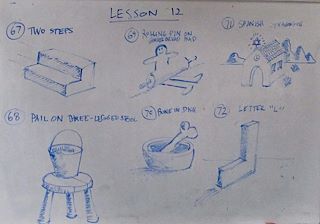 LESSON 12
67 TWO STEPS
69 ROLLING PIN ON
71 SPANISH
68 PAIL ON THREE-LEGGED STOOL
70 BONE IN DISH
72 LETTER "L"